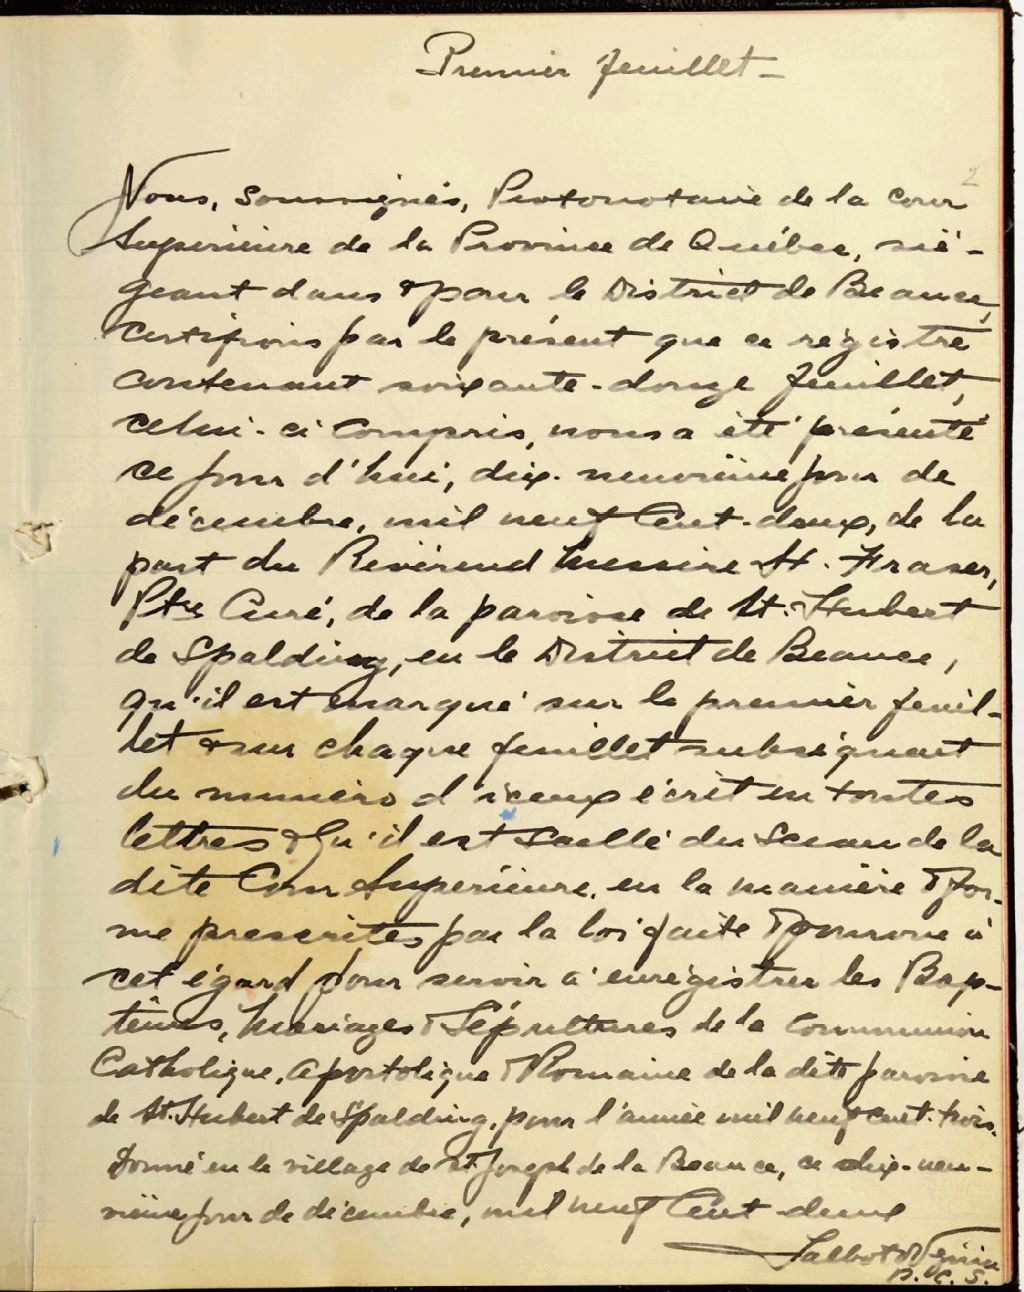 Premier feuillet -
2
Nous, Soussignés, Protonotaire de la Cour
Supérieure de la Province de Québec, sié-
geant dans & pour le District de Beauce,
certifions par le présent que ce régistre
contenant soixante-douze feuillet,
celui-ci compris, nous a été présenté
ce jour d'hui, dix-neuvième jour de
décembre, mil neuf Cent-deux, de la
part du Révérend Messire H. Fraser,
Ptre Curé, de la paroisse de St. Hubert
de Spalding, en le District de Beauce,
qu'il est marqué sur le premier feuil-
let & sur chaque feuillet subséquent
du numéro d'iceux écrit en toutes
lettres & Qu'il est Scellé du Sceau de la
dite Cour Supérieure, en la manière & for-
me prescrites par la loi faite & pourvue à
cet égard pour servir à enrégistrer les Bap-
têmes, Mariages & Sépultures de la Communion
Catholique, Apostolique & Romaine de la dite paroisse
de St. Hubert de Spalding, pour l'année mil neuf cent-trois.
Donné en le village de St Joseph de la Beauce, ce dix-neu-
vième jour de décembre, mil neuf Cent deux
Talbot & Vézina
P. C. S.